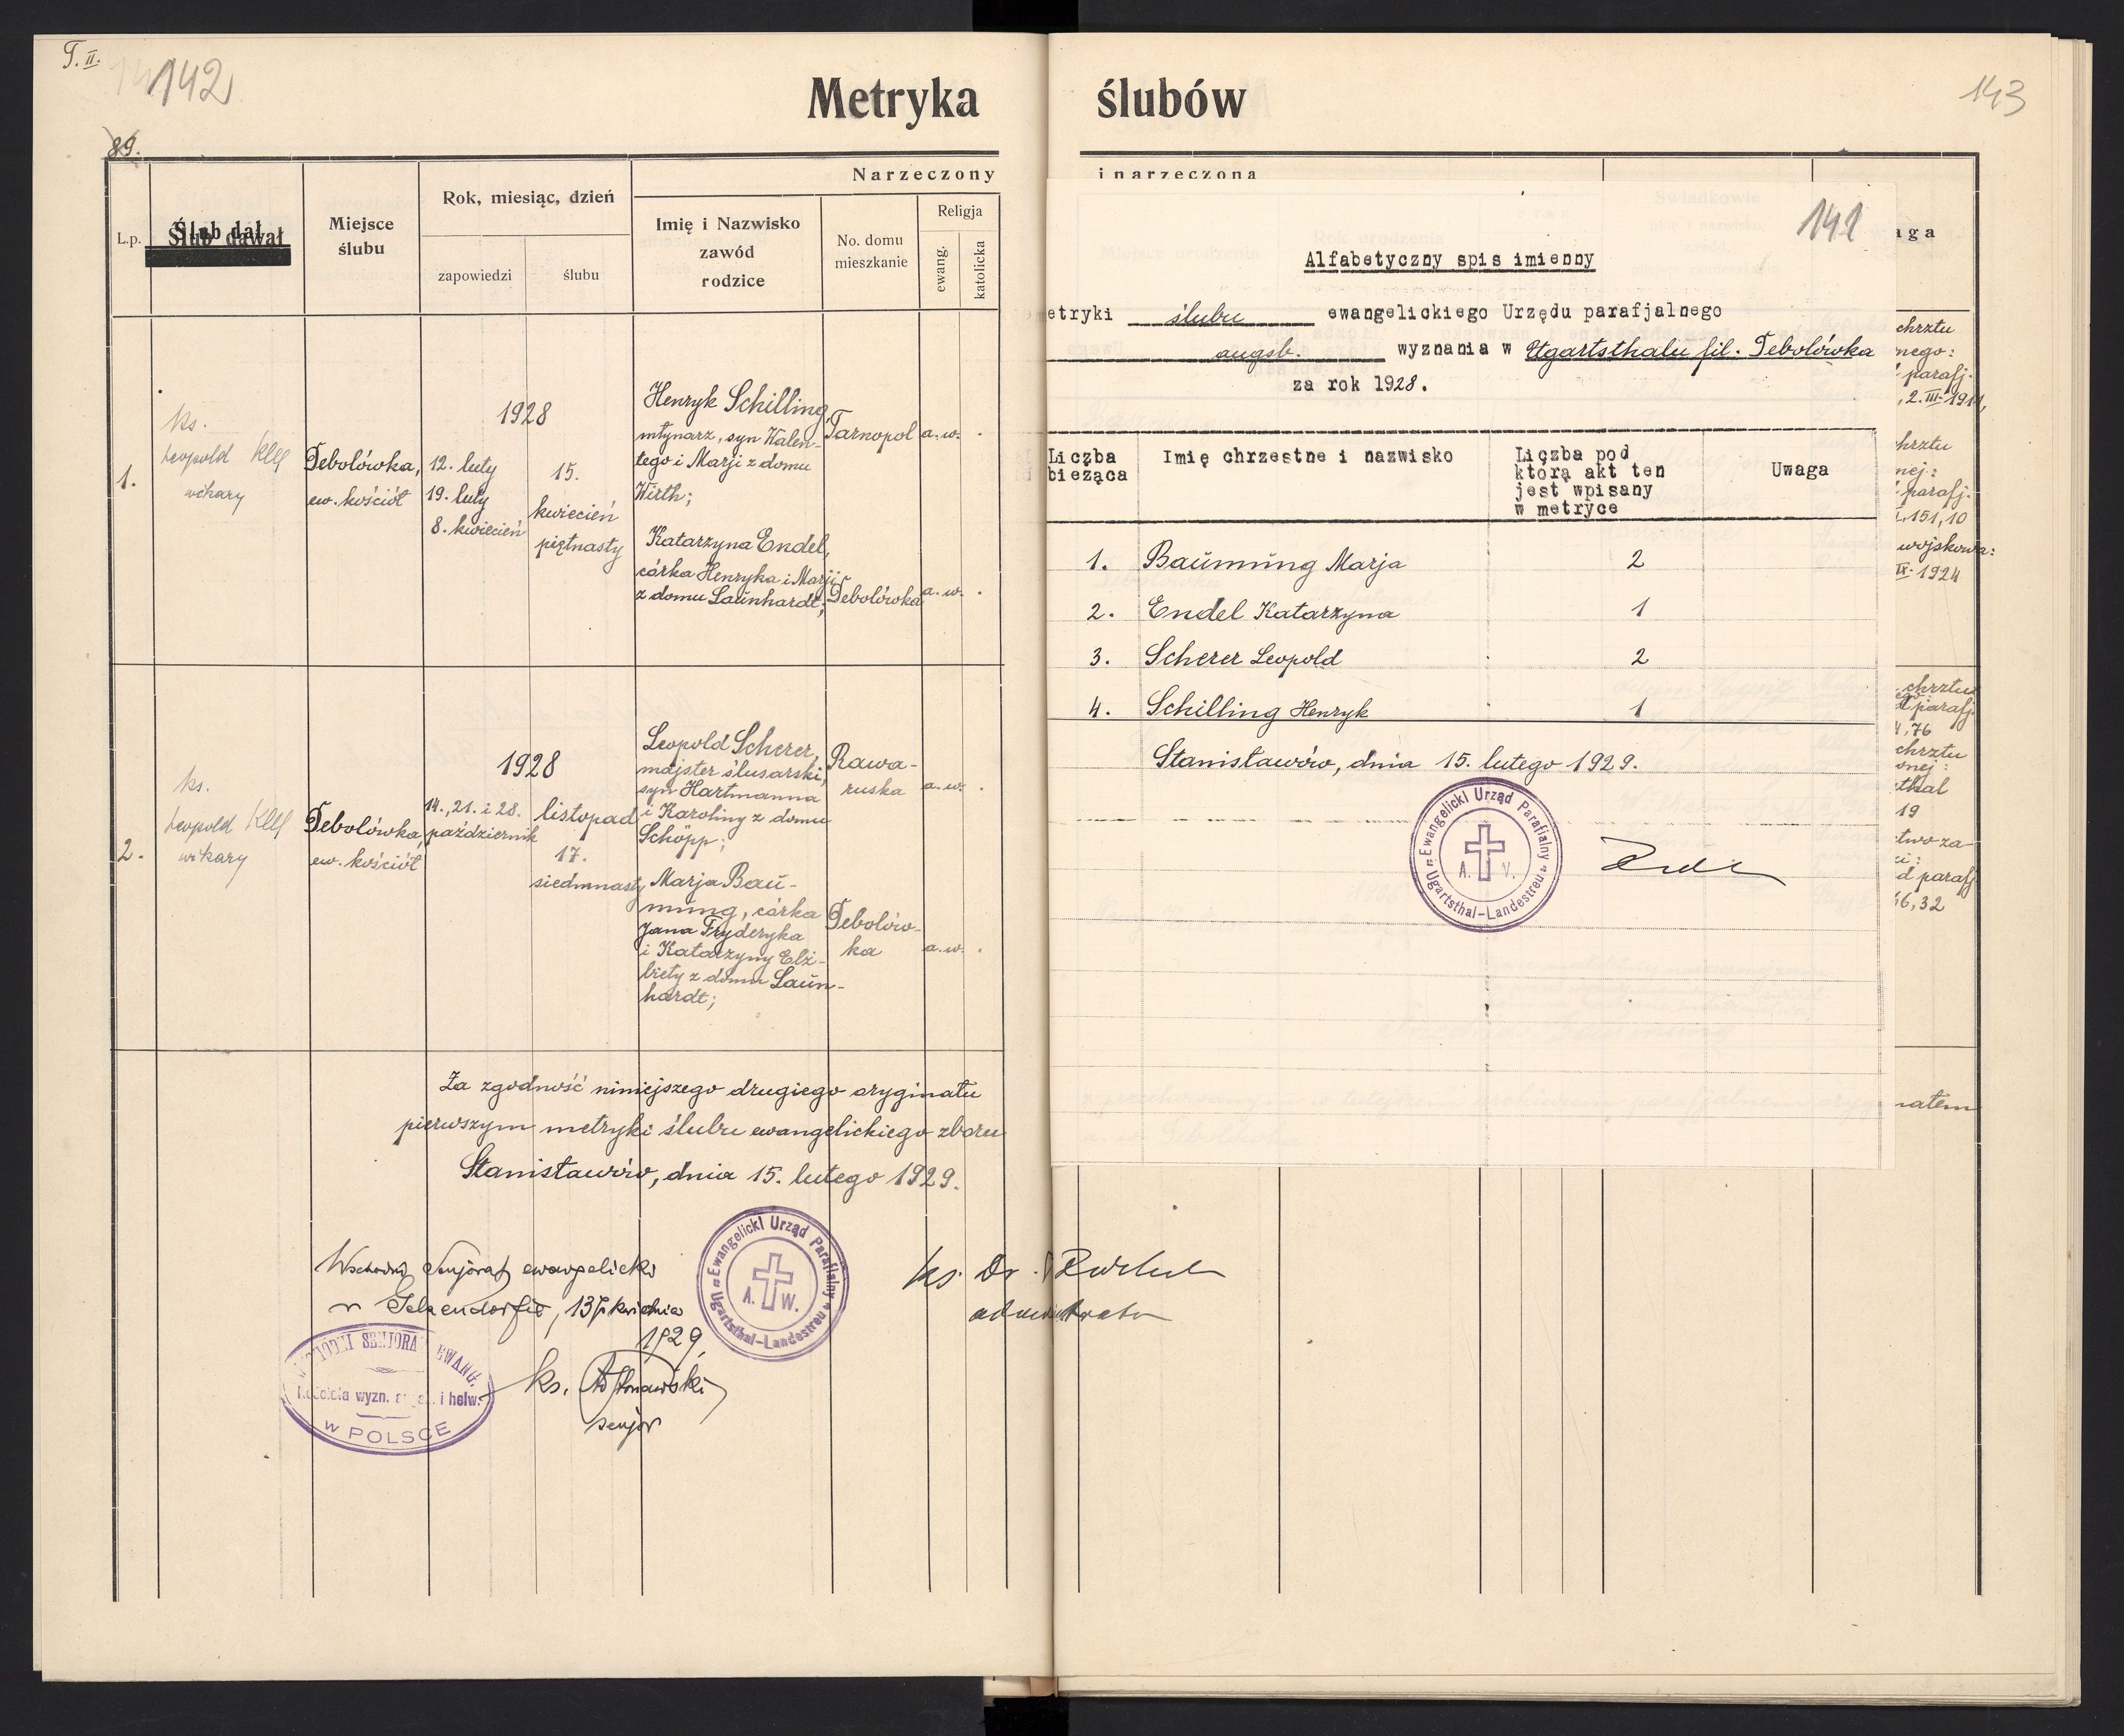 T. II.
142
89.
Metryka
L.p.
Ślub dał
Miejsce
ślubu
Rok, miesiąc, dzień
zapowiedzi
ślubu
Narzeczony
Imię i Nazwisko
zawód
rodzice
No. domu
mieszkanie
Religja
ewang.
katolicka
1.
ks.
Leopold
wikary
Debolówka,
ew. kościół
1928
12. luty
19. luty
8. kwiecień
15.
kwiecień
piętnasty
Henryk Schilling,
młynarz, syn Walen-
tego i Marji z domu
Wirth;
Tarnopol
a. w.
Katarzyna Endel,
córka Henryka i Marji
z domu Launhardt;
Debolówka
a. w.
2.
ks.
Leopold
wikary
Debolówka,
ew. kościół
1928
14., 21. i 28.
październik
listopad
17.
siedmnasty
Leopold Scherer,
majster ślusarski,
syn Hartmanna
i Karoliny z domu
Schöpp;
Rawa-
ruska
a. w.
Marja Baŭ-
mŭng, córka
Jana Fryderyka
i Katarzyny Elż-
biety z domu Laŭn-
hardt;
Debolów-
ka
a. w.
Za zgodność niniejszego drugiego oryginału
pierwszym metryki ślubu ewangelickiego zboru
Stanisławów, dnia 15. lutego 1929.
Ewangelicki Urząd Parafialny
w Ugartsthal-Landestreu
A. W.
ks. Dr.
administrator
Wschodni Senjorat ewangelicki
w, 13 kwietnia
1929
WSCHODNI SENJORAT EWANG.
Kościoła wyzn. augsb. i helw.
w POLSCE
ks.
senjor
ślubów
143
i narzeczona
aga
141
Alfabetyczny spis imienny
etryki ślubu ewangelickiego Urzędu parafjalnego
augsb. wyznania w Ugartsthalu fil. Debolówka
za rok 1928.
Liczba
bieżąca
Imię chrzestne i nazwisko
Liczba pod
którą akt ten
jest wpisany
w metryce
Uwaga
1. Baŭmŭng Marja 2
2. Endel Katarzyna 1
3. Scherer Leopold 2
4. Schilling Henryk 1
Stanisławów, dnia 15. lutego 1929.
Ewangelicki Urząd Parafialny
w Ugartsthal-Landestreu
A. V.
chrztu
nego:
parafj.
, 2. III. 1911,
chrztu
nej:
parafj.
151, 10
wojskowa:
IX. 1924
chrztu
parafj.
, 76
chrztu
nej:
thal
19
two za-
i:
d parafj.
66, 32
nałem